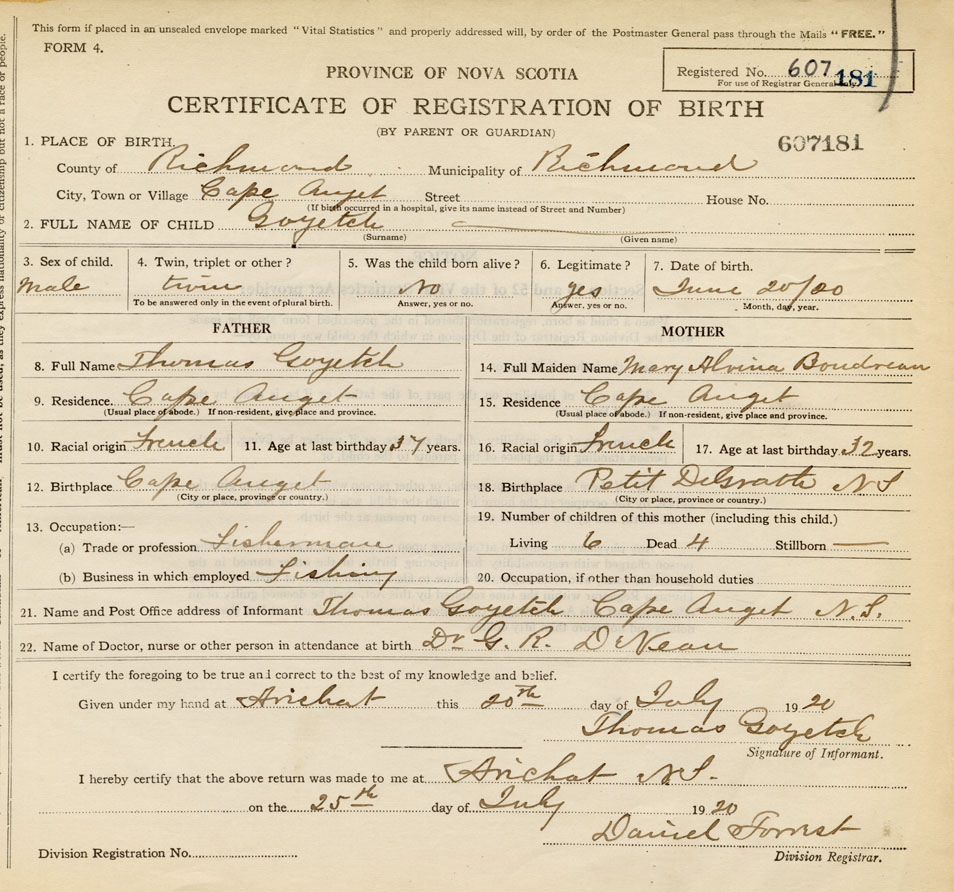 This form if placed in an unsealed envelope marked "Vital Statistics" and properly addressed will, by order of the Postmaster General pass through the Mails "FREE."
FORM 4.
Registered No. 607 181
For use of Registrar General only.
PROVINCE OF NOVA SCOTIA
CERTIFICATE OF REGISTRATION OF BIRTH
(BY PARENT OR GUARDIAN)
607181
1. PLACE OF BIRTH.
County of Richmond Municipality of Richmond
City, Town or Village Cape Auget Street House No.
(If birth occurred in a hospital, give its name instead of Street and Number)
2. FULL NAME OF CHILD Goyetch —
(Surname) (Given name)
3. Sex of child. 4. Twin, triplet or other? 5. Was the child born alive? 6. Legitimate? 7. Date of birth.
Male twin No yes June 20/20
To be answered only in the event of plural birth. Answer, yes or no. Answer, yes or no. Month, day, year.
FATHER MOTHER
8. Full Name Thomas Goyetch 14. Full Maiden Name Mary Alvina Boudreau
9. Residence. Cape Auget 15. Residence Cape Auget
(Usual place of abode.) If non-resident, give place and province. (Usual place of abode.) If non-resident, give place and province.
10. Racial origin French 11. Age at last birthday 37 years. 16. Racial origin French 17. Age at last birthday 32 years.
12. Birthplace Cape Auget 18. Birthplace Petit DeGrath N S
(City or place, province or country.) (City or place, province or country.)
13. Occupation:— 19. Number of children of this mother (including this child.)
(a) Trade or profession Fisherman Living 6 Dead 4 Stillborn —
(b) Business in which employed Fishing 20. Occupation, if other than household duties
21. Name and Post Office address of Informant Thomas Goyetch Cape Auget N. S.
22. Name of Doctor, nurse or other person in attendance at birth Dr G. R. DeNean
I certify the foregoing to be true and correct to the best of my knowledge and belief.
Given under my hand at Arichat this 20th day of July 1920
Thomas Goyetch
Signature of Informant.
I hereby certify that the above return was made to me at Arichat N.S.
on the 25th day of July 1920
Daniel Forrest
Division Registration No. Division Registrar.